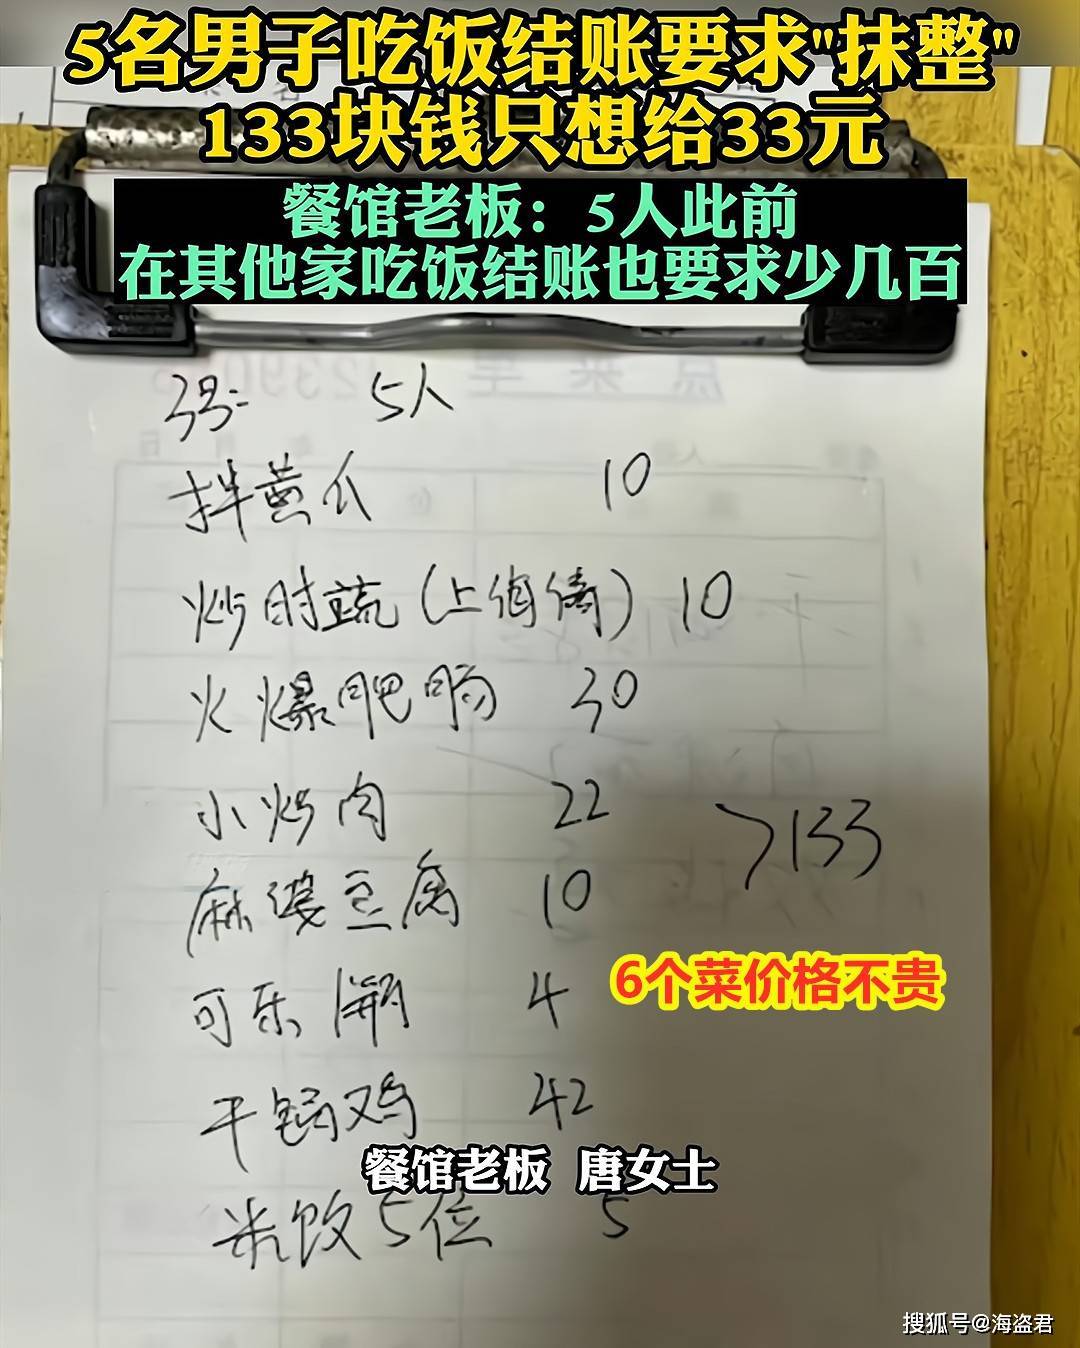 5名男子吃饭结账要求"抹整"
133块钱只想给33元
餐馆老板：5人此前
在其他家吃饭结账也要求少几百
3号: 5人
拌黄瓜 10
炒时蔬(上
) 10
火爆肥肠 30
小炒肉 22
>133
麻婆豆腐 10
6个菜价格不贵
可乐1瓶 4
干锅鸡 42
餐馆老板 唐女士
米饭5位 5
搜狐号@海盗君